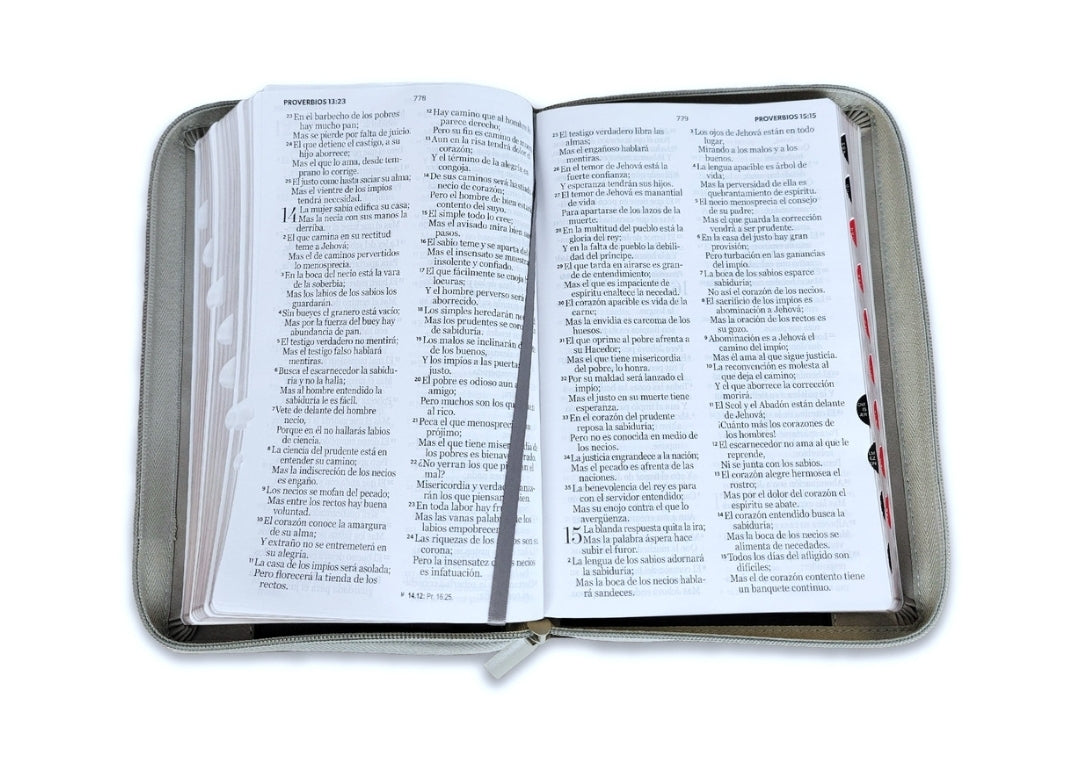 PROVERBIOS 13:23
778
23 En el barbecho de los pobres
hay mucho pan;
Mas se pierde por falta de juicio.
24 El que detiene el castigo, a su
hijo aborrece;
Mas el que lo ama, desde tem-
prano lo corrige.
25 El justo come hasta saciar su alma;
Mas el vientre de los impíos
tendrá necesidad.
14 La mujer sabia edifica su casa;
Mas la necia con sus manos la
derriba.
2 El que camina en su rectitud
teme a Jehová;
Mas el de caminos pervertidos
lo menosprecia.
3 En la boca del necio está la vara
de la soberbia;
Mas los labios de los sabios los
guardarán.
4 Sin bueyes el granero está vacío;
Mas por la fuerza del buey hay
abundancia de pan.
5 El testigo verdadero no mentirá;
Mas el testigo falso hablará
mentiras.
6 Busca el escarnecedor la sabidu-
ría y no la halla;
Mas al hombre entendido la
sabiduría le es fácil.
7 Vete de delante del hombre
necio,
Porque en él no hallarás labios
de ciencia.
8 La ciencia del prudente está en
entender su camino;
Mas la indiscreción de los necios
es engaño.
9 Los necios se mofan del pecado;
Mas entre los rectos hay buena
voluntad.
10 El corazón conoce la amargura
de su alma;
Y extraño no se entremeterá en
su alegría.
11 La casa de los impíos será asolada;
Pero florecerá la tienda de los
rectos.
12 Hay camino que al hombre le
parece derecho;
Pero su fin es camino de
13 Aun en la risa tendrá dolor el
corazón;
Y el término de la alegría es
congoja.
14 De sus caminos será hastiado
necio de corazón;
Pero el hombre de bien estará
contento del suyo.
15 El simple todo lo cree;
Mas el avisado mira bien
pasos.
16 El sabio teme y se aparta
Mas el insensato se muestra
insolente y confiado.
17 El que fácilmente se enoja
locuras;
Y el hombre perverso será
aborrecido.
18 Los simples heredarán
Mas los prudentes se
de sabiduría.
19 Los malos se inclinarán
de los buenos,
Y los impíos a las puertas
justo.
20 El pobre es odioso aun
amigo;
Pero muchos son los que
al rico.
21 Peca el que menosprecia
prójimo;
Mas el que tiene
los pobres es
22 ¿No yerran los que el
mal?
Misericordia y verdad
rán los que piensan bien
23 En toda labor hay
Mas las vanas de los
labios empobrecen
24 Las riquezas de los son su
corona;
Pero la insensatez necios
es infatuación.
14.12: Pr. 16.25.
779
PROVERBIOS 15:15
25 El testigo verdadero libra las
almas;
Mas el engañoso hablará
mentiras.
26 En el temor de Jehová está la
fuerte confianza;
Y esperanza tendrán sus hijos.
27 El temor de Jehová es manantial
de vida
Para apartarse de los lazos de la
muerte.
28 En la multitud del pueblo está la
gloria del rey;
Y en la falta de pueblo la debili-
dad del príncipe.
29 El que tarda en airarse es gran-
de de entendimiento;
Mas el que es impaciente de
espíritu enaltece la necedad.
30 El corazón apacible es vida de la
carne;
Mas la envidia es carcoma de los
huesos.
31 El que oprime al pobre afrenta a
su Hacedor;
Mas el que tiene misericordia
del pobre, lo honra.
32 Por su maldad será lanzado el
impío;
Mas el justo en su muerte tiene
esperanza.
33 En el corazón del prudente
reposa la sabiduría;
Pero no es conocida en medio de
los necios.
34 La justicia engrandece a la nación;
Mas el pecado es afrenta de las
naciones.
35 La benevolencia del rey es para
con el servidor entendido;
Mas su enojo contra el que lo
avergüenza.
15 La blanda respuesta quita la ira;
Mas la palabra áspera hace
subir el furor.
2 La lengua de los sabios adornará
la sabiduría;
Mas la boca de los necios habla-
rá sandeces.
3 Los ojos de Jehová están en todo
lugar,
Mirando a los malos y a los
buenos.
4 La lengua apacible es árbol de
vida;
Mas la perversidad de ella es
quebrantamiento de espíritu.
5 El necio menosprecia el consejo
de su padre;
Mas el que guarda la corrección
vendrá a ser prudente.
6 En la casa del justo hay gran
provisión;
Pero turbación en las ganancias
del impío.
7 La boca de los sabios esparce
sabiduría;
No así el corazón de los necios.
8 El sacrificio de los impíos es
abominación a Jehová;
Mas la oración de los rectos es
su gozo.
9 Abominación es a Jehová el
camino del impío;
Mas él ama al que sigue justicia.
10 La reconvención es molesta al
que deja el camino;
Y el que aborrece la corrección
morirá.
11 El Seol y el Abadón están delante
de Jehová;
¡Cuánto más los corazones de
los hombres!
12 El escarnecedor no ama al que le
reprende,
Ni se junta con los sabios.
13 El corazón alegre hermosea el
rostro;
Mas por el dolor del corazón el
espíritu se abate.
14 El corazón entendido busca la
sabiduría;
Mas la boca de los necios se
alimenta de necedades.
15 Todos los días del afligido son
difíciles;
Mas el de corazón contento tiene
un banquete continuo.